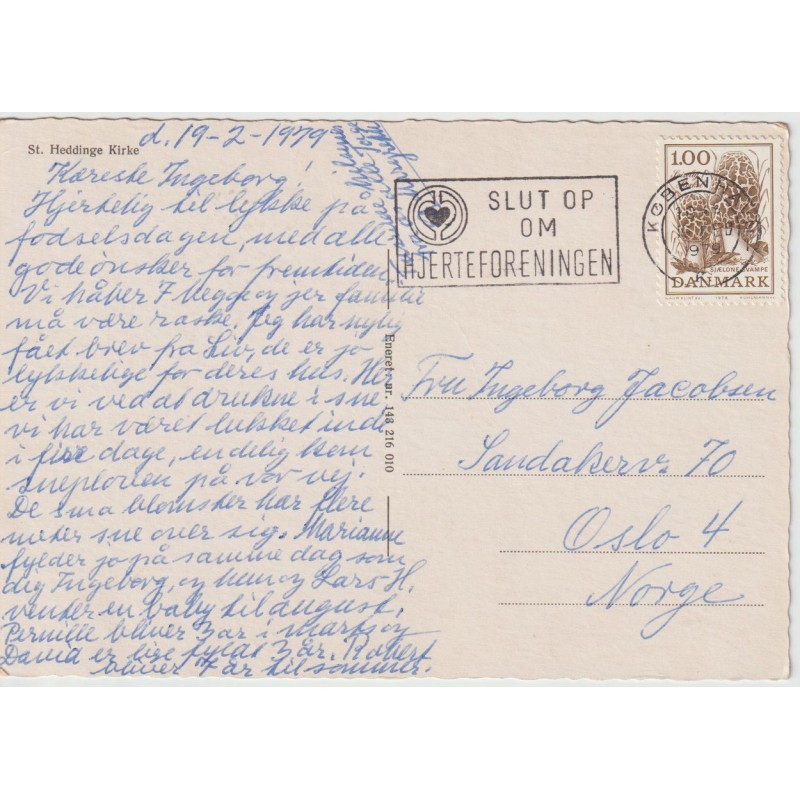 St. Heddinge Kirke
d. 19-2-1979
Kæreste Ingeborg!
Hjertelig til lykke på
fødselsdagen, med alle
gode ønsker for fremtiden.
Vi håber I begge og jer familie
må være raske. Jeg har nylig
fået brev fra Liv, de er jo
lykkelige for deres hus. Her
er vi ved at drukne i sne
vi har været lukket inde
i fire dage, endelig kom
sneploven på vor vej.
De små blomster har flere
meter sne over sig. Marianne
fylder jo på samme dag som
dig Ingeborg, og hun og Lars H.
venter en baby til august.
Pernille bliver 3 år i marts og
David er lige fyldt 3 år. Robert
bliver 7 år til sommer.
Eneret: nr. 143 216 010
SLUT OP
OM
HJERTEFORENINGEN
KØBENH
1979
1.00
SJÆLDNE SVAMPE
DANMARK
1978
Fru Ingeborg Jacobsen
Sandakerv. 70
Oslo 4
Norge